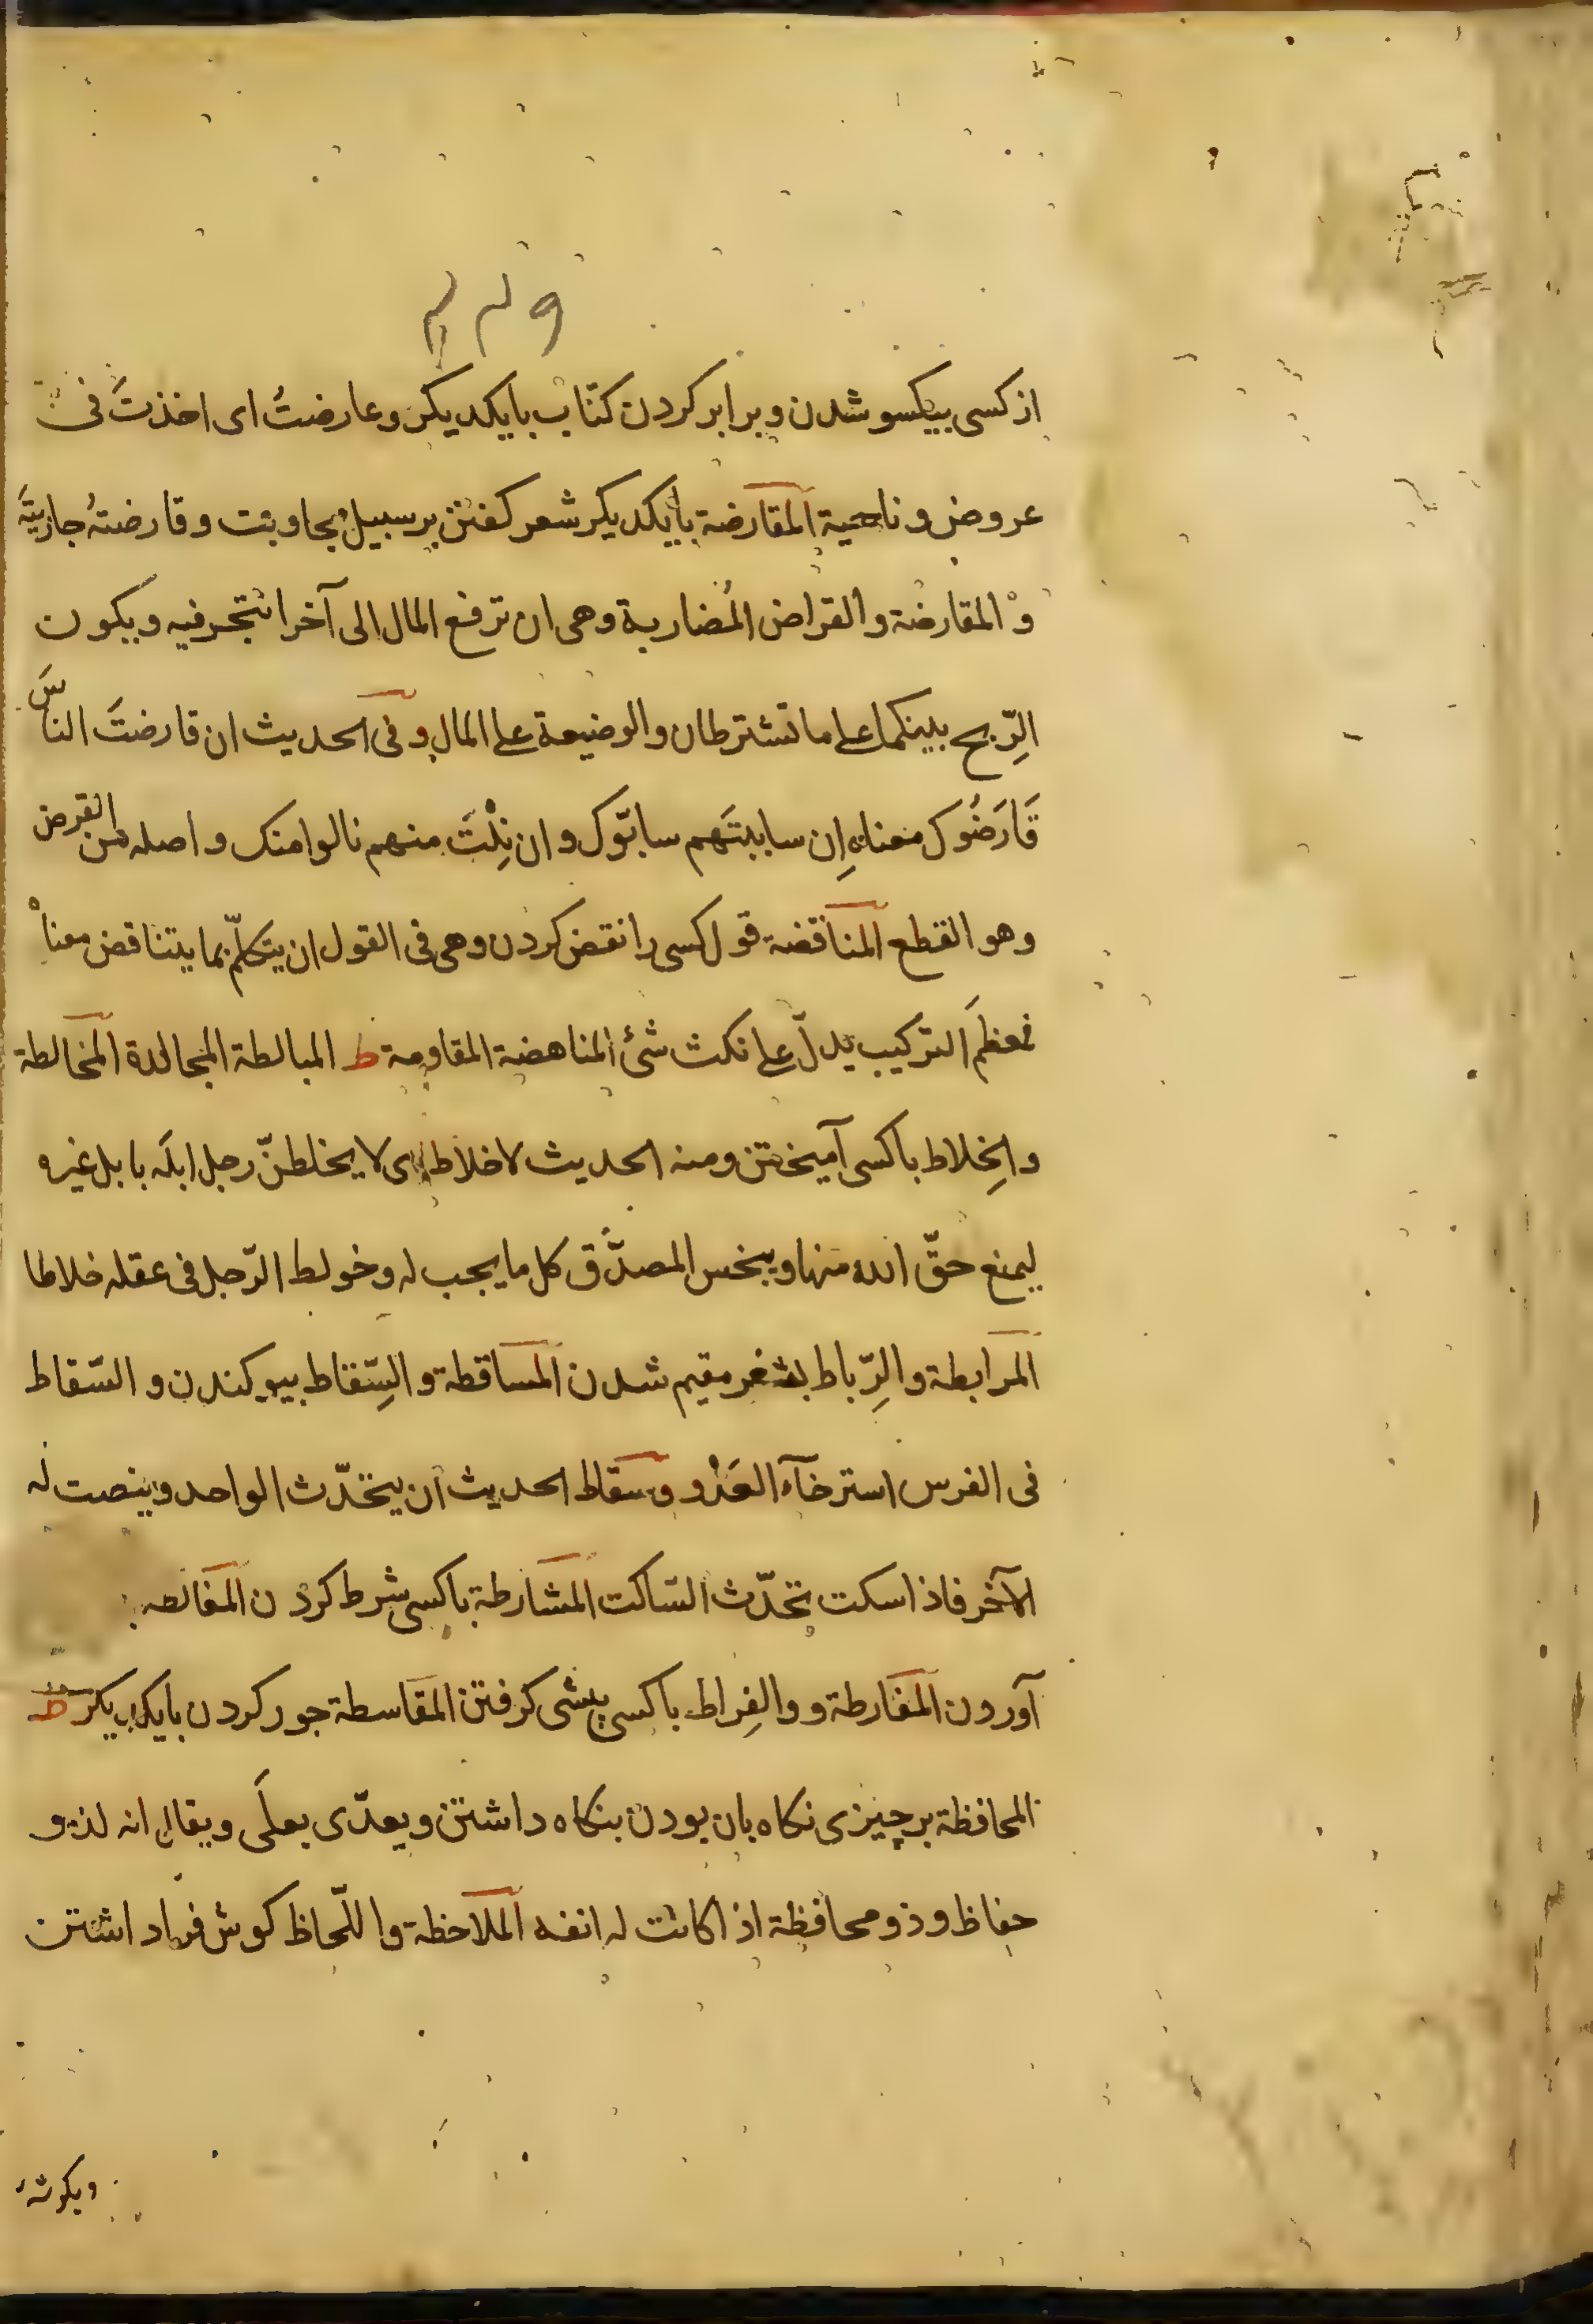 از کسی بیکسو شدن و برابر کردن کتاب بایکدیکر و عارضتُ ای اخذتَ فی
عروض و ناحیة المقارضة بایکدیکر شعر کفتن بر سبیل مجاوبت و قارضتهُ جازیتَه
و المقارضة و القراض المُضاربة وهی ان ترفع المال الی آخر اتتجر فیه ویکون
الرِّبح بینکما علی ما تشترطان والوضیعة علی المال و فی الحدیث ان قارضتَ الناسَ
قَارَضُوک معناه اِن ساببتَهم سابّوک و ان نِلْتَ منهم نالوا منک و اصله من القرض
وهو القطع المناقضة قول کسی را نقض کردن وهی فی القول ان یتکلّم بما یتناقض معناه
فمعظم الترکیب یدلّ علی نکث شئ المناهضة المقاومة ط المبالطة المجالدة المخالطة
والخِلاط باکسی آمیختن ومنه الحدیث لاخلاط ای لا یخلطنّ رجل ابلَه بابل غیره
لیمنع حقّ الله منها ویبخس المصدّق کل ما یجب له و خولط الرّجل فی عقله خلاطا
المرابطة والرِّباط بثغر مقیم شدن المساقطة والسِّقاط بیوکندن و السّقاط
فی الفرس استرخآء العَدْو وسقاط الحدیث ان یتحدّث الواحد وینصت له
الآخر فاذا سکت تحدّث السّاکت المشارطة باکسی شرط کردن المغالطه
آوردن المفارطة و والفِراط باکسی پیشی کرفتن المقاسطة جور کردن بایکدیکر ظ
المحافظة بر چیزی نکاه بان بودن بنکاه داشتن ویعدّی بعلَی ویقال انه لذو
حفاظ وذو محافظة اذا کانت له انفه الملاحظة واللّحاظ کوش فراداشتن